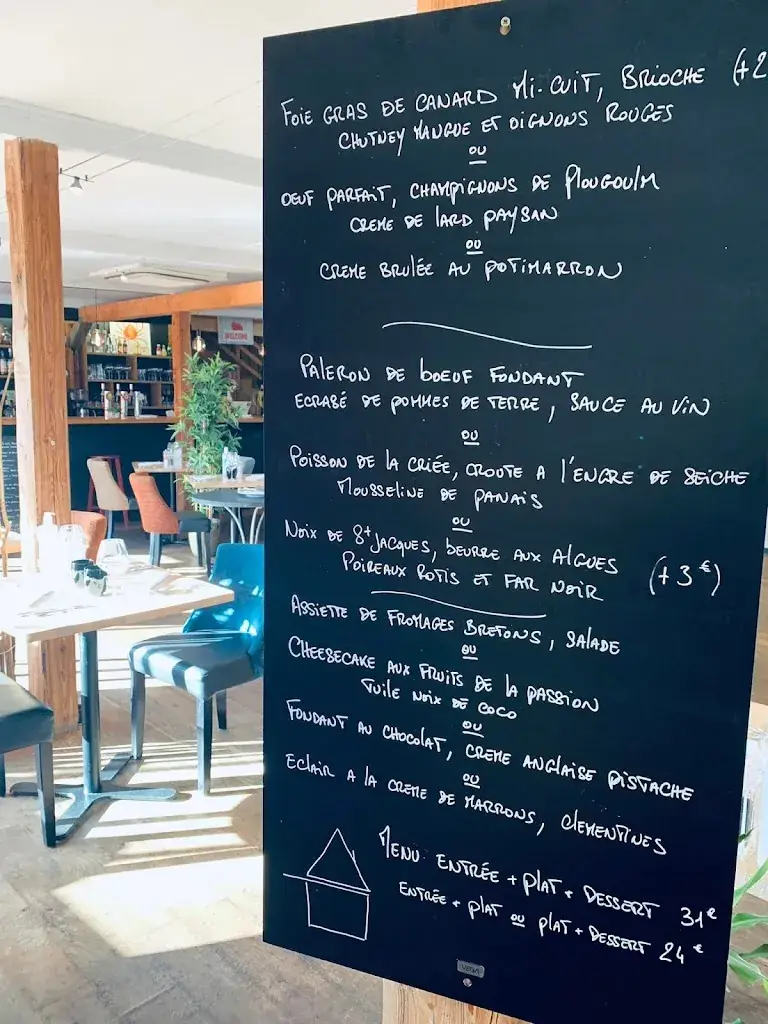 FOIE GRAS DE CANARD MI-CUIT, BRIOCHE (+2
CHUTNEY MANGUE ET OIGNONS ROUGES
OU
OEUF PARFAIT, CHAMPIGNONS DE PLOUGOULM
CREME DE LARD PAYSAN
OU
CREME BRULÉE AU POTIMARRON
PALERON DE BOEUF FONDANT
ECRASÉ DE POMMES DE TERRE, SAUCE AU VIN
OU
POISSON DE LA CRIÉE, CROUTE A L'ENCRE DE SEICHE
MOUSSELINE DE PANAIS
OU
NOIX DE St JACQUES, BEURRE AUX ALGUES (+3€)
POIREAUX ROTIS ET FAR NOIR
ASSIETTE DE FROMAGES BRETONS, SALADE
OU
CHEESECAKE AUX FRUITS DE LA PASSION
TUILE NOIX DE COCO
OU
FONDANT AU CHOCOLAT, CREME ANGLAISE PISTACHE
OU
ECLAIR A LA CREME DE MARRONS, CLEMENTINES
MENU: ENTRÉE + PLAT + DESSERT 31€
ENTRÉE + PLAT OU PLAT + DESSERT 24€
WELCOME